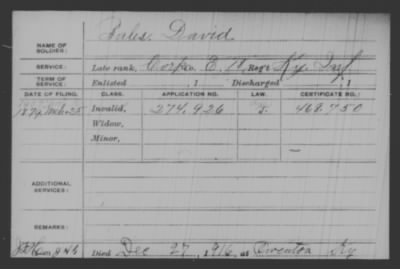 Fales, David
NAME OF SOLDIER:
SERVICE: Late rank, Corp Co. E, 18, Reg't Ky. Inf.
TERM OF SERVICE: Enlisted , 1 Discharged , 1
DATE OF FILING. CLASS. APPLICATION NO. LAW. CERTIFICATE NO.
1879 Mch. 25 Invalid, 274,926 468.750
Widow,
Minor,
ADDITIONAL SERVICES:
REMARKS:
Died Dec 27, 1916, at Ky